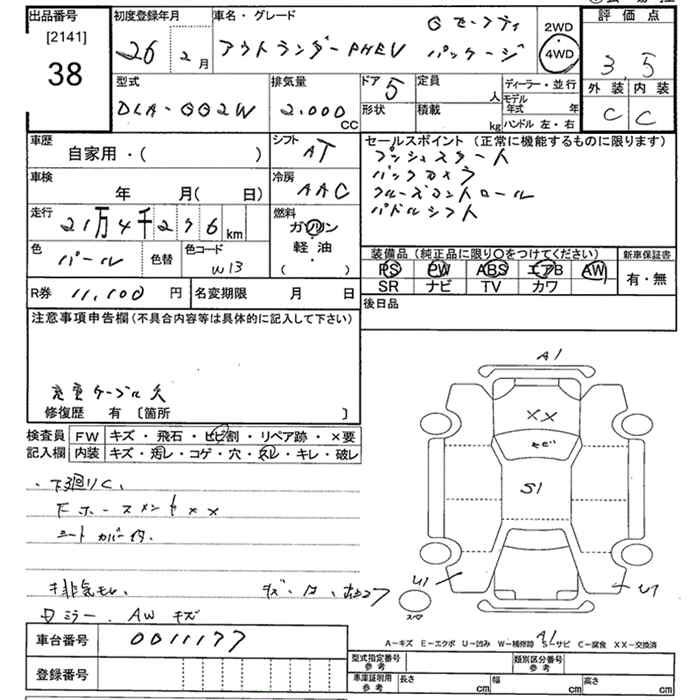 出品番号 初度登録年月 車名・グレード Gセーフティ 2WD 評価点
[2141] 38 26 2月 アウトランダーPHEV パッケージ 4WD 3.5
型式 排気量 ドア 5 定員 人 ディーラー・並行 外装 内装
DLA-GG2W 2.000 CC 形状 積載 kg モデル年式 年 C C
ハンドル 左・右
車歴 自家用・( ) シフト AT セールスポイント(正常に機能するものに限ります)
プッシュスタート
車検 年 月( 日) 冷房 AAC バックカメラ
クルーズコントロール
走行 21万4千276km 燃料 ガソリン パドルシフト
軽油
( )
色 パール 色替 色コード W13 装備品(純正品に限り○をつけてください) 新車保証書
PS PW ABS エアB AW 有・無
SR ナビ TV カワ
R券 11,100円 名変期限 月 日 後日品
注意事項申告欄(不具合内容等は具体的に記入して下さい)
A1
充電ケーブル欠
修復歴 有 〔箇所 〕 XX
検査員 FW キズ・飛石・ヒビ割・リペア跡・×要
記入欄 内装 キズ・汚レ・コゲ・穴・スレ・キレ・破レ
・下廻りC、
S1
Fホースメント××
シートカバー付.
U1 U1
スペア
ミラー.AWキズ
車台番号 0011177 A1
A-キズ E-エクボ U-凹み W-補修跡 S-サビ C-腐食 XX-交換済
登録番号 型式指定番号 参考 類別区分番号 参考
車庫証明用 参考 長さ cm 幅 cm 高さ cm